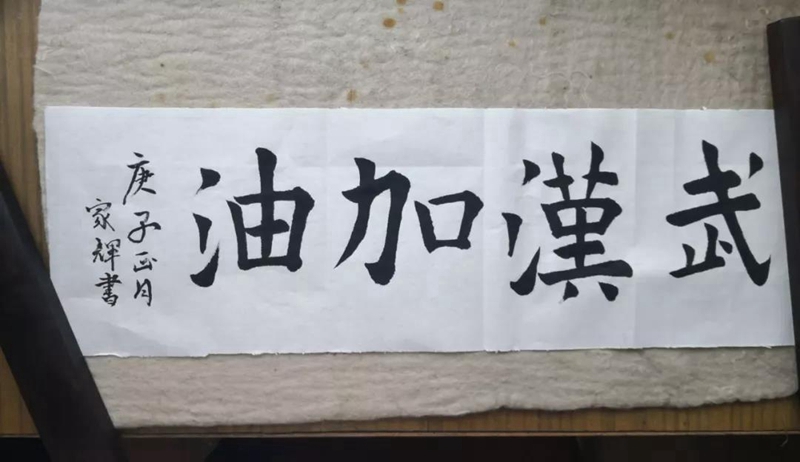 武漢加油
庚子正月
家輝書